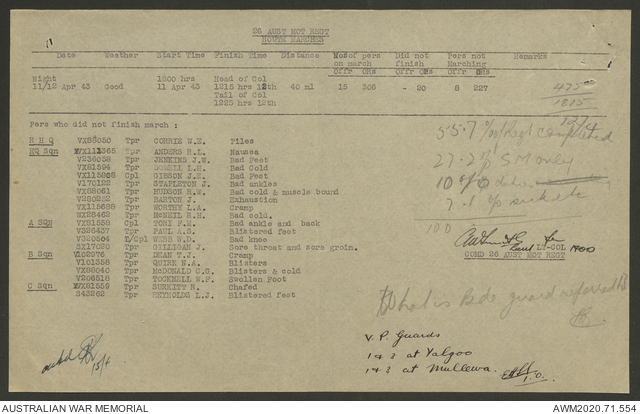 26 AUST MOT REGT
ROUTE MARCHES
Date Weather Start Time Finish Time Distance Nos of pers on march Did not finish Pers not Marching Remarks
Offr ORs Offr ORs Offr ORs
Night 1800 hrs Head of Col
11/12 Apr 43 Good 11 Apr 43 1215 hrs 12th 40 ml 15 306 - 20 8 227
Tail of Col
1225 hrs 12th
475
1815
Pers who did not finish march :
R H Q VX88050 Tpr CORRIE W.E. Piles
HQ Sqn Tpr ANDERS R.L. Nausea
V236058 Tpr JENKINS J.W. Bad Feet
VX81594 Tpr L.H. Bad Cold
Cpl GIBSON J.E. Bad Feet
V170122 Tpr STAPLETON J. Bad ankles
VX88061 Tpr HUDSON R.W. Bad cold & muscle bound
Tpr BARTON J. Exhaustion
VX115688 Tpr WORTHY L.A. Cramp
WX28462 Tpr McNEIL R.H. Bad cold.
A SQN VX81558 Cpl TONI F.M. Bad ankle and back
V326437 Tpr PAUL A.S. Blistered feet
V320504 L/Cpl WEBB W.D. Bad knee
SX17020 Tpr GILLIGAN J. Sore throat and sore groin.
B Sqn V102976 Tpr DEAN T.J. Cramp
V161358 Tpr QUIRK N.A. Blisters
VX88040 Tpr McDONALD C.G. Blisters & cold
V206518 Tpr TOCKNELL W.F. Swollen Foot
C Sqn VX81559 Tpr SURKITT R. Chafed
S43262 Tpr REYNOLDS L.J. Blistered feet
55.7 % of Regt completed
27.2 % SM only
10 %
7.1 %
100
LT-COL
COMD 26 AUST MOT REGT
What is Bde guard referred to
V.P. Guards
1 & 3 at Yalgoo
1 & 3 at Mullewa.
I.O.
15/4
AUSTRALIAN WAR MEMORIAL AWM2020.71.554